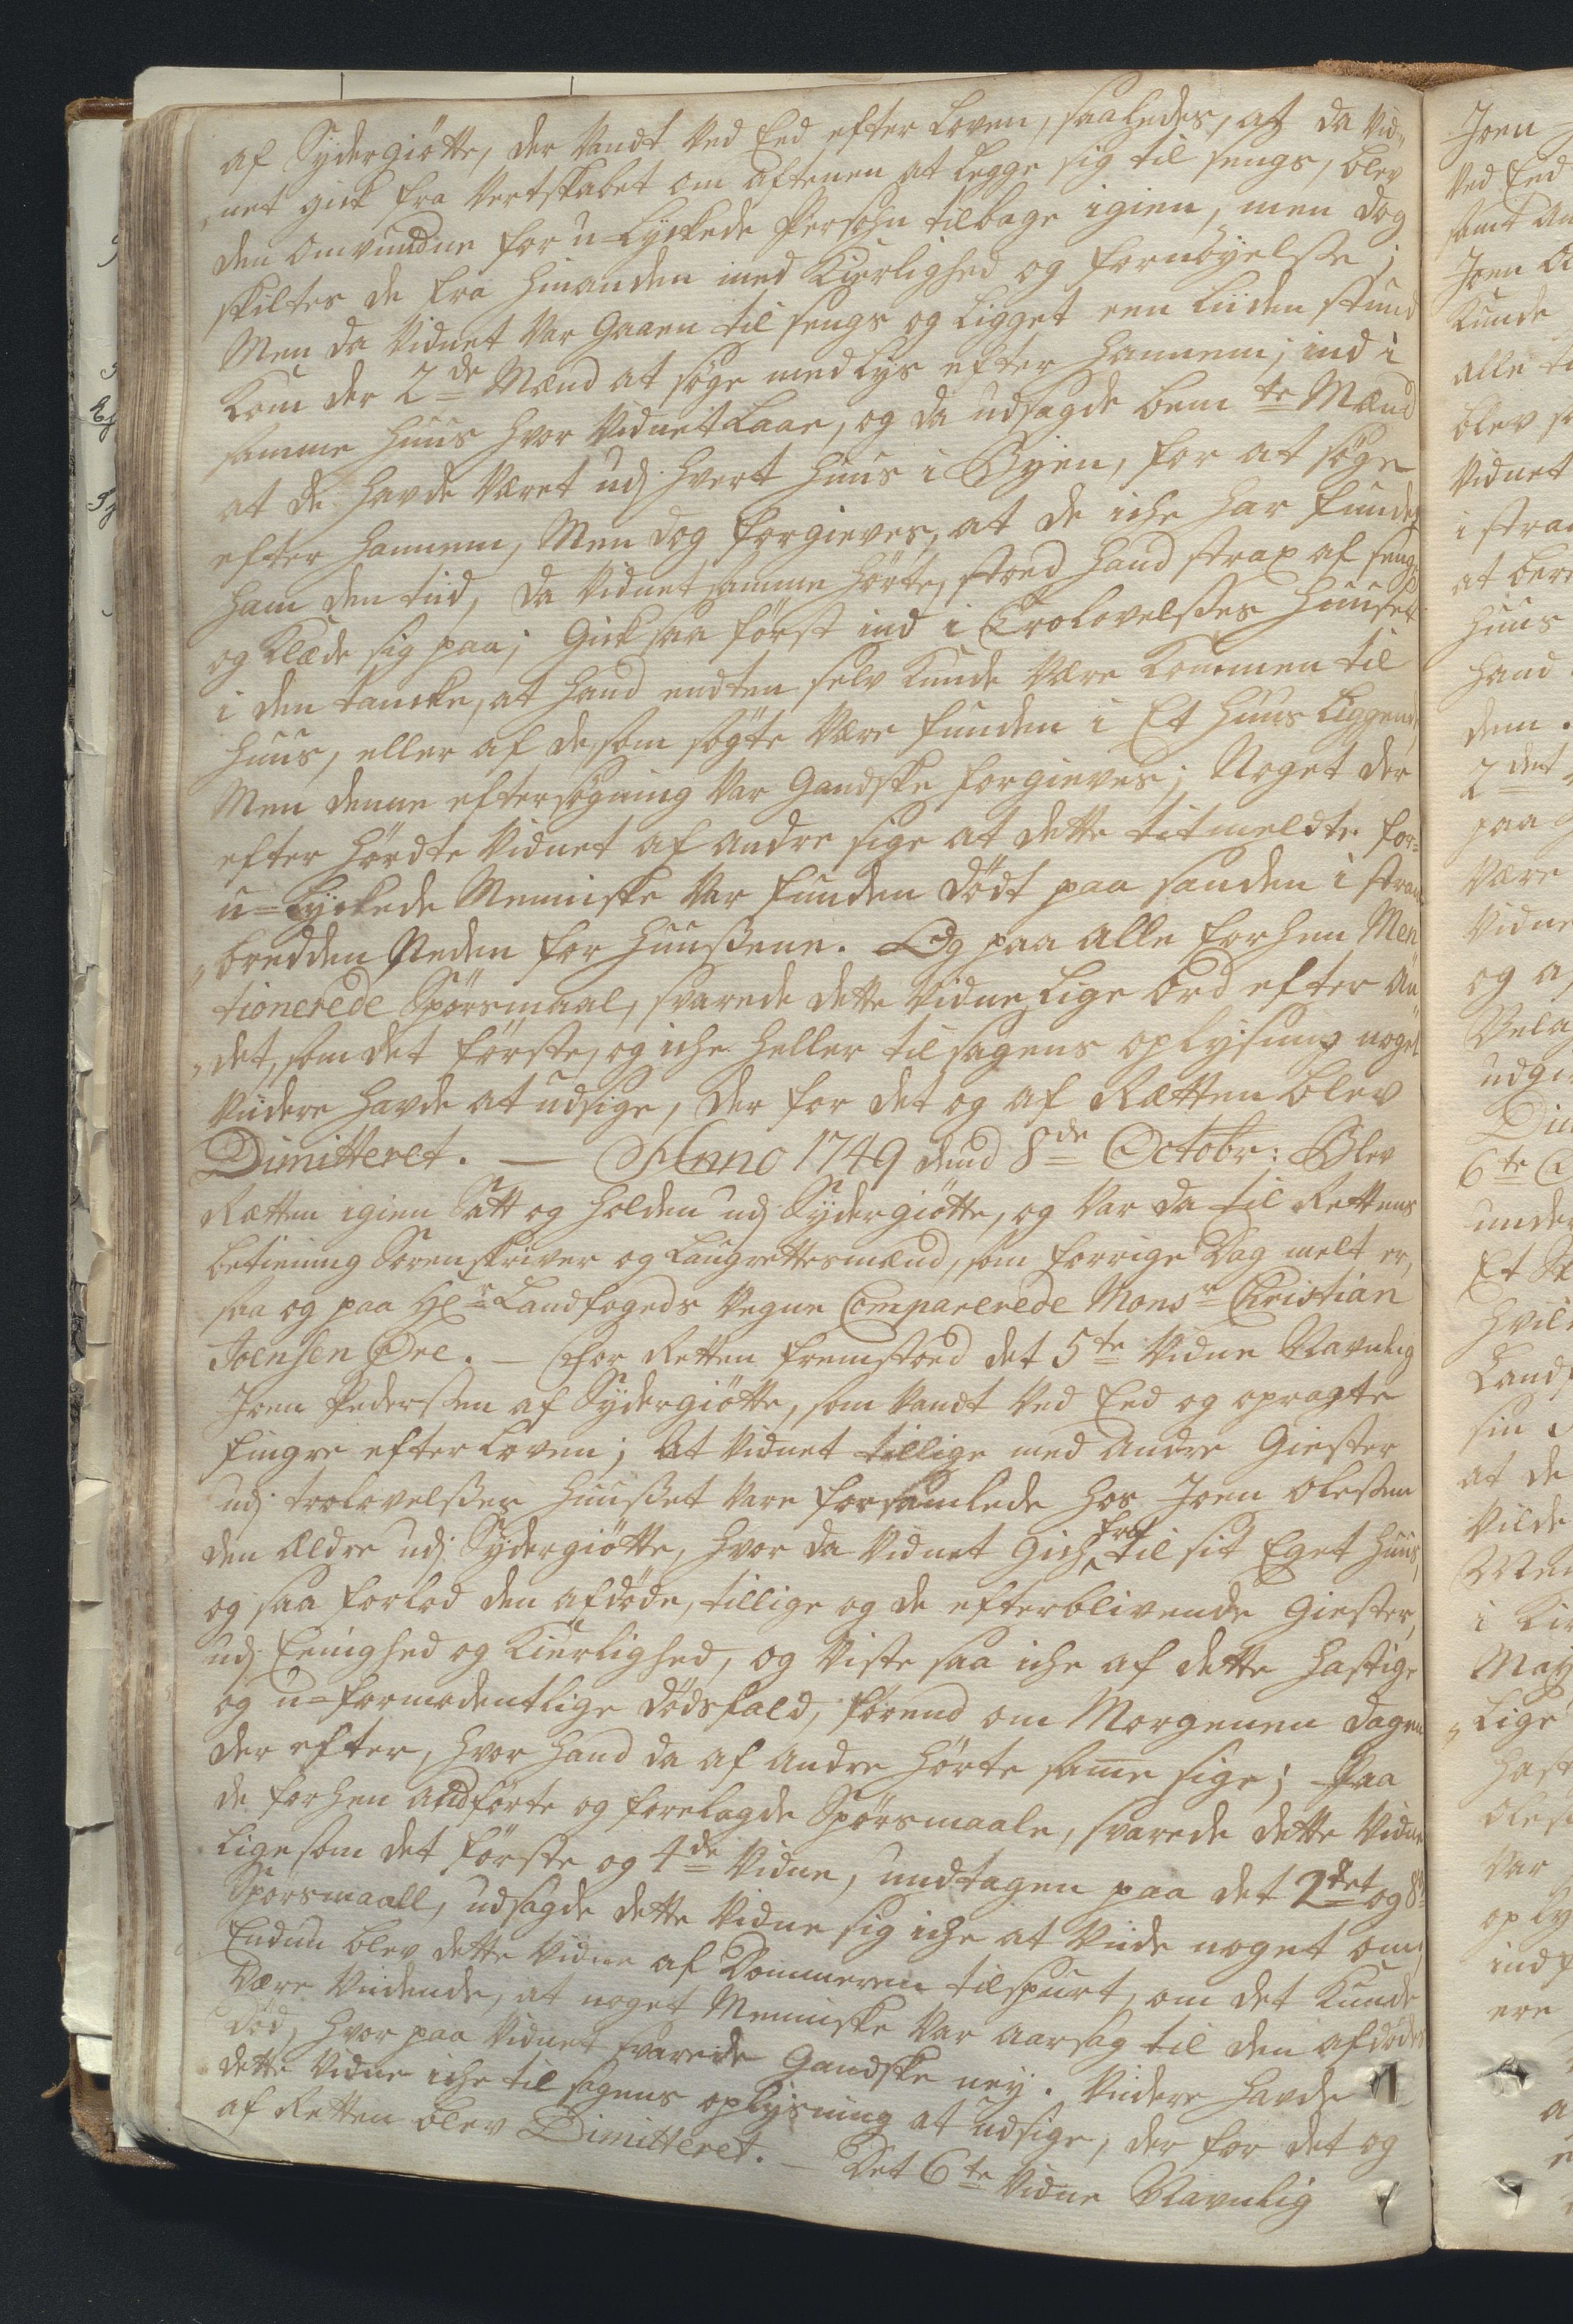 af Sydergiötte, der Vandt Ved Eed efter Loven, saaledes, at da Vid„
„net gick fra Vertskabet om aftenen at Legge sig til sengs, blev
den omvundne for u=Lyckede Persohn tilbage igien, men dog
skiltes de fra hinanden med Kierlighed og fornöyelsse;
Men da Vidnet Var Gaaen til sengs og Ligget een Liiden stund
Kom der 2de Mænd at söge med Lys efter hannem; ind i
samme huus hvor Vidnet Laae, og da udsagde bemte Mænd
at de havde Været udj hvert huus i Byen, for at söge
efter hannem, Men dog forgieves, at de iche har fundet
ham den tiid, da Vidnet samme hörte, stoed hand strax af seng
og Klæde sig paa; Gick saa först ind i Trolovelsses huuset
i den tancke, at hand endten selv Kunde Være Kommen til
huus, eller af de, som sögte Være funden i Et huus Liggende,
Men denne eftersögning Var Gandske forgieves; Noget der
efter hördte Vidnet af andre sige at dette titmeldte for=
u=Lyckede Menniske Var funden Dödt paa sanden i stran
„bredden Neden for huussene. Og paa alle forhen Men
tionerede Spörsmaal, svarede dette Vidne, Lige ord efter an
„det, som det förste, og iche heller til sagens oplysning noget
Viidere havde at udsige, der for det og af Rætten blev
Dimitteret. — Anno 1749 dend 8de Octobr: Blev
Rætten igien Satt og holden udj Sydergiötte, og Var da til Rettens
betiening Sorenskriver og Laugrettesmænd, som forrige Dag melt er,
saa og paa Hr Landfogeds Vegne Comparerede Monsr Christian
Joensen Öre. — For Retten fremstoed det 5te Vidne Navnlig
Joen Pederssen af Sydergiötte, som Vandt Ved Eed og opragte
fingre efter Loven; At Vidnet tillige med andre Giester
udj trolovelsses huusset Vare forsamlede hos Joen Olessen
den Ældre udj Sydergiötte, hvor da Vidnet Gich fra til sit Eget huus,
og saa forlod den afdöde, tillige og de efterblivende Giester,
udj Eenighed og Kierlighed, og Viste saa iche af dette hastige
og u=formodentlige Dödsfald, förend om Morgenen dagen
der efter, hvor hand da af andre hörte same sige; Paa
de forhen andförte og forelagde Spörsmaale, svarede dette Vidne
Lige som det förste og 4de Vidne, undtagen paa det 2det og 8de
Spörsmaall, udsagde dette Vidne sig iche at Viide noget om,
Endnu blev dette Vidne af Dommeren tilspurt, om det Kunde
Være Viidende, at noget Menniske Var aarsag til den afdödes
Död, hvor paa Vidnet svarede Gandske ney. Viidere havde
dette Vidne iche til sagens oplysning at udsige, der for det og
af Retten blev Dimitteret. — Det 6te Vidne Navnlig